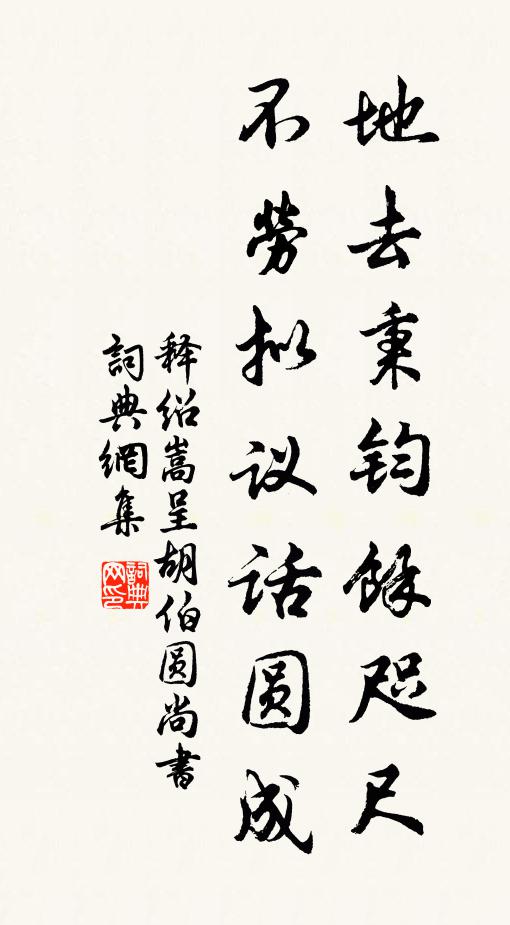 地去秉钧馀咫尺
不劳拟议话圆成
释绍嵩呈胡伯圆尚書
詞典網集
詞典网印